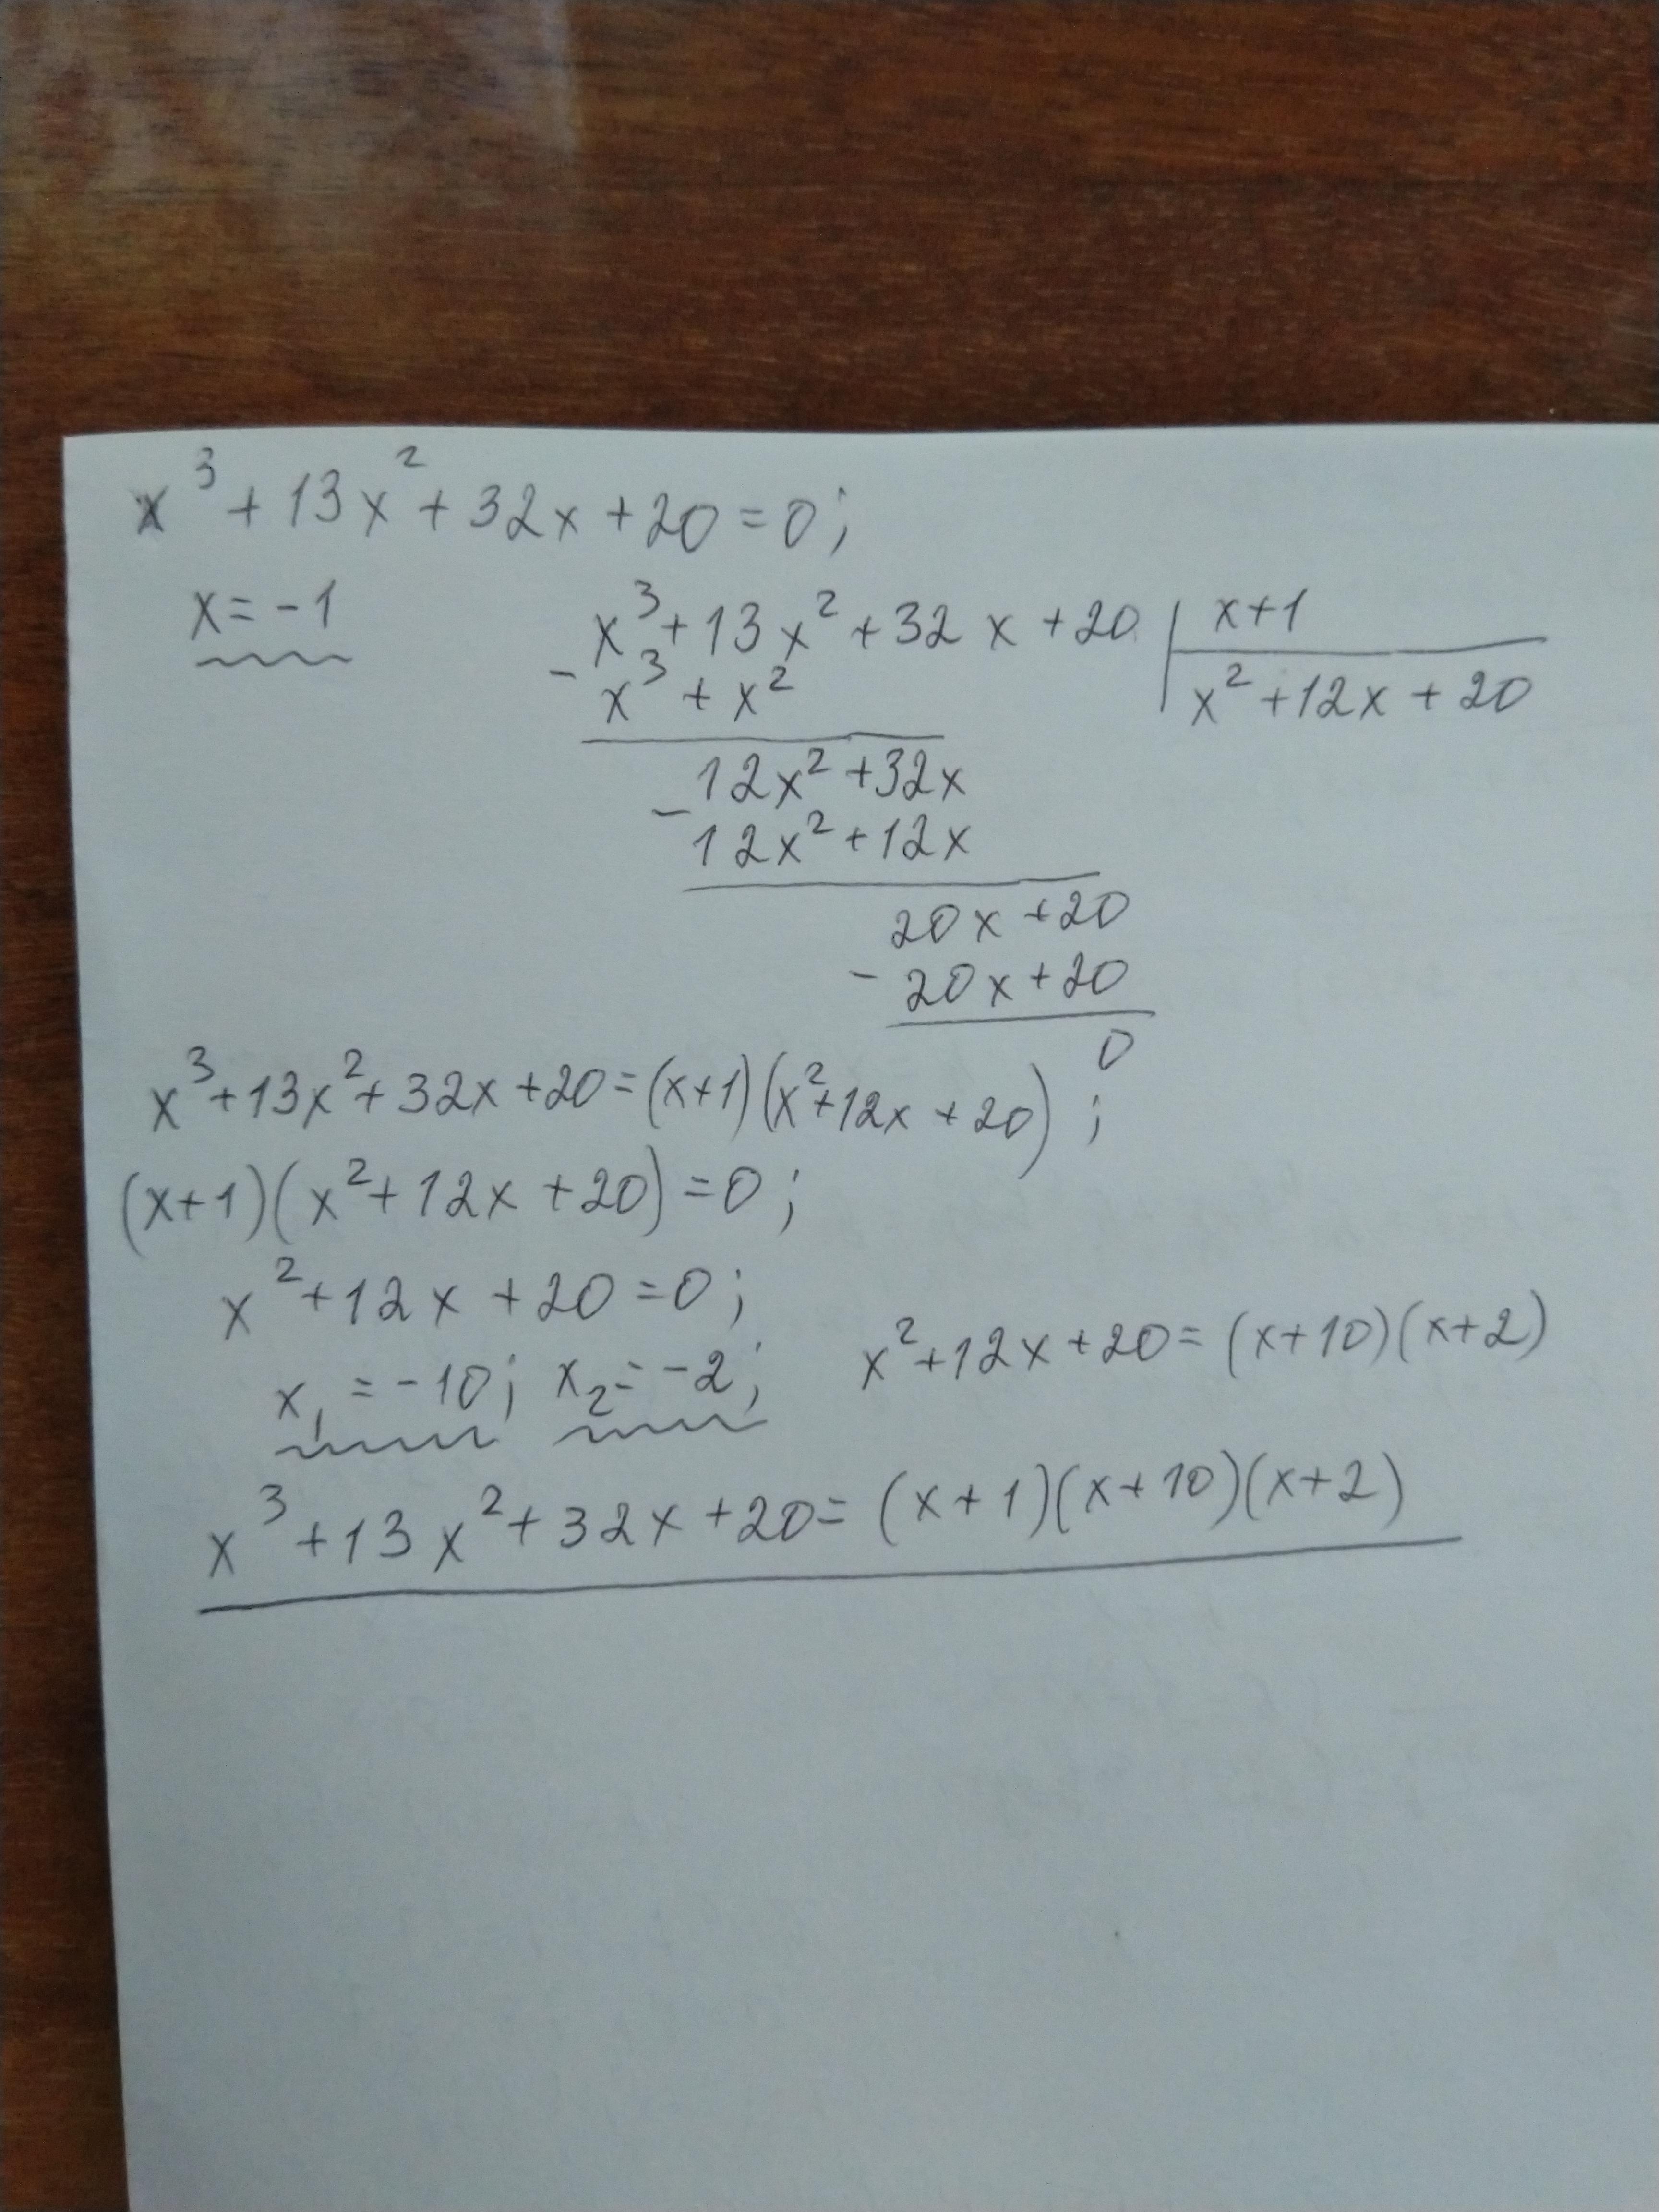 x³ + 13x² + 32x + 20 = 0;
x = -1
x³ + 13x² + 32x + 20 | x+1
- x³ + x² | x² + 12x + 20
12x² + 32x
- 12x² + 12x
20x + 20
- 20x + 20
0
x³ + 13x² + 32x + 20 = (x+1)(x² + 12x + 20);
(x+1)(x² + 12x + 20) = 0;
x² + 12x + 20 = 0;
x₁ = -10; x₂ = -2; x² + 12x + 20 = (x+10)(x+2)
x³ + 13x² + 32x + 20 = (x+1)(x+10)(x+2)